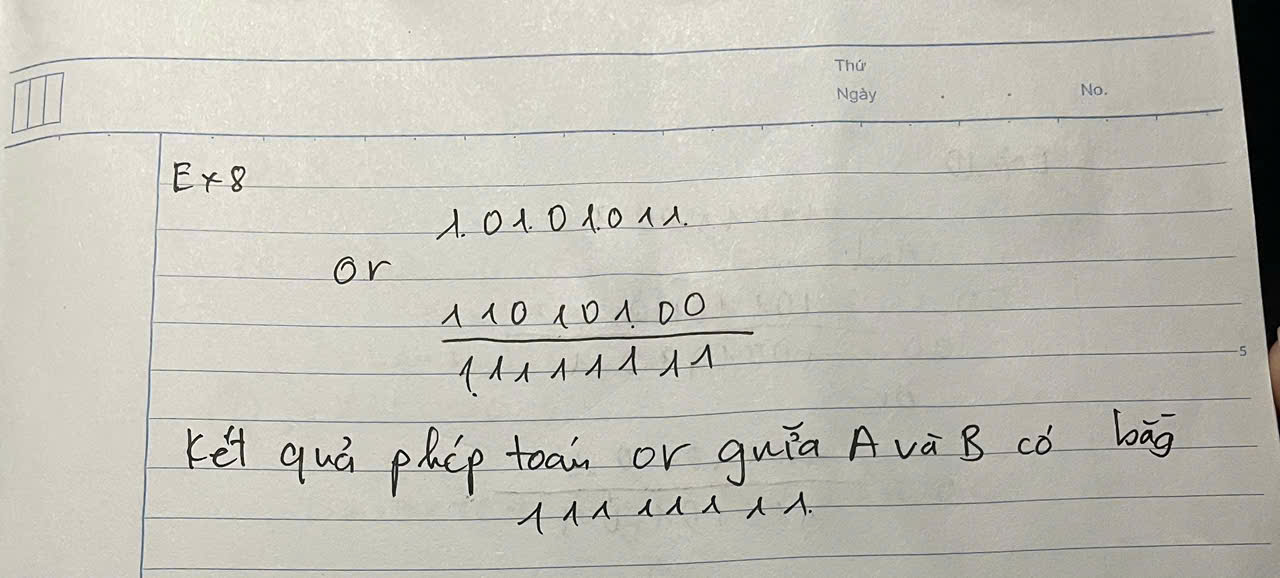 Thứ
Ngày . . No.
Ex8
1.01.01.011.
or
110101.00
11111111
5
Kết quả phép toán or giữa A và B có bằg
11111111.